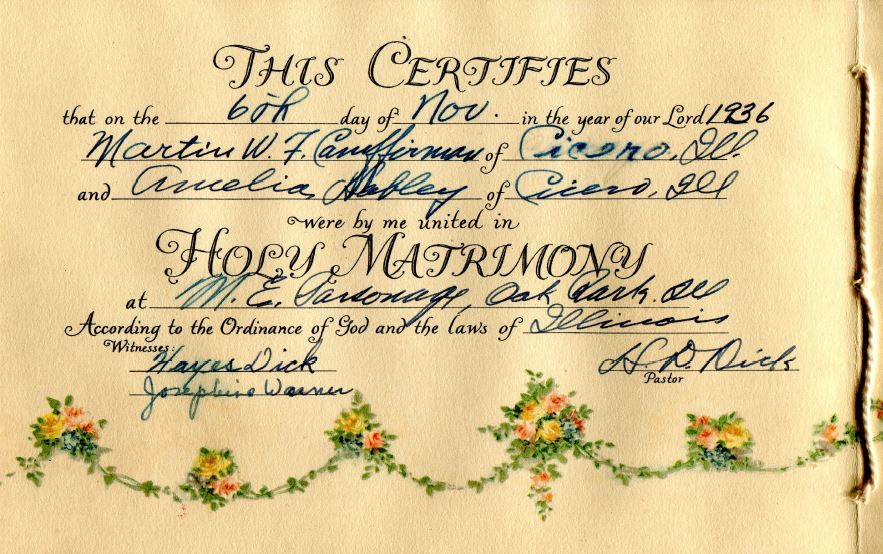 THIS CERTIFIES
that on the 6th day of Nov. in the year of our Lord 1936
Martin W. F. of Cicero, Ill.
and Amelia of Cicero, Ill
were by me united in
HOLY MATRIMONY
at M. E. Parsonage, Oak Park. Ill
According to the Ordinance of God and the laws of Illinois
Witnesses:
Hayes Dick
H. D. Dick
Josephine Warner
Pastor